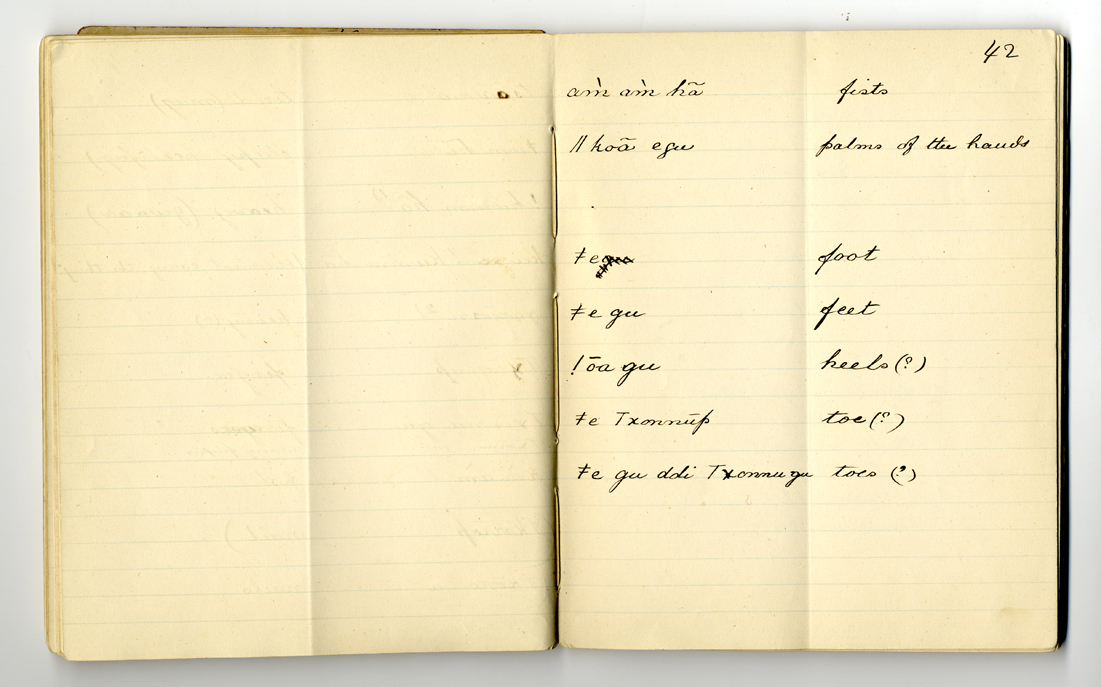 42
am̀ am̀ hã fists
ǁkoã egu palms of the hands
ǂe foot
ǂe gu feet
!ōa gu heels (?)
ǂe Txonnūp toe (?)
ǂe gu ddi Txonnugu toes (?)